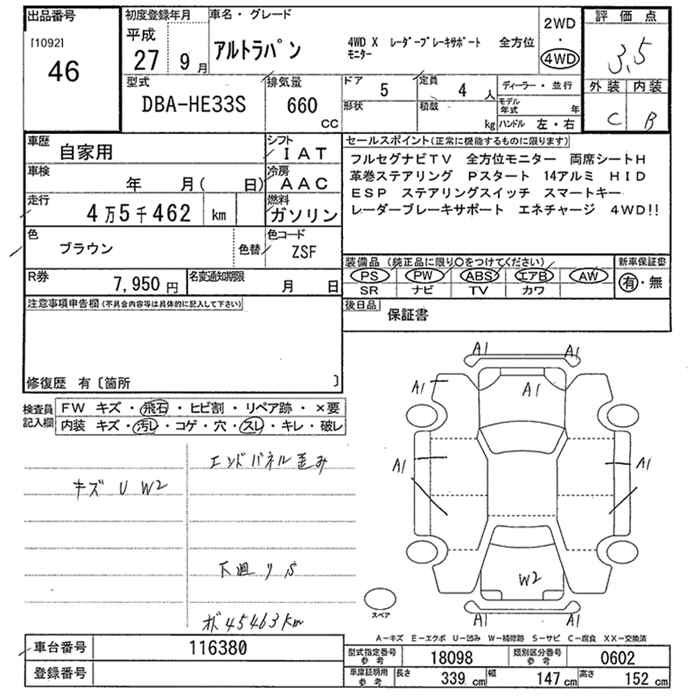 出品番号
[1092]
46
初度登録年月
平成
27 9月
車名・グレード
アルトラパン
4WD X レーダーブレーキサポート 全方位
モニター
2WD
・
4WD
評価点
3.5
外装 内装
C B
型式
DBA-HE33S
排気量
660
cc
ドア 5
形状
定員 4 人
積載 kg
ディーラー・並行
モデル年式 年
ハンドル 左・右
車歴
自家用
シフト
IAT
車検
年 月( 日)
冷房
AAC
走行
4万5千462 km
燃料
ガソリン
色
ブラウン
色替
色コード
ZSF
R券
7,950円
名変通知期限
月 日
セールスポイント(正常に機能するものに限ります)
フルセグナビTV 全方位モニター 両席シートH
革巻ステアリング Pスタート 14アルミ HID
ESP ステアリングスイッチ スマートキー
レーダーブレーキサポート エネチャージ 4WD!!
装備品(純正品に限り○をつけてください)
PS PW ABS エアB AW
SR ナビ TV カワ
新車保証書
有・無
後日品
保証書
注意事項申告欄(不具合内容等は具体的に記入して下さい)
修復歴 有〔箇所 〕
検査員
記入欄
FW キズ・飛石・ヒビ割・リペア跡・×要
内装 キズ・汚レ・コゲ・穴・スレ・キレ・破レ
エンドパネル歪み
キズ U W2
下廻りS
ポ45463km
A1 A1
A1 A1 A1
A1 A1
W2
スペア
A-キズ E-エクボ U-凹み W-補修跡 S-サビ C-腐食 XX-交換済
車台番号
116380
登録番号
型式指定番号
参考
18098
類別区分番号
参考
0602
車庫証明用
参考
長さ 339 cm
幅 147 cm
高さ 152 cm